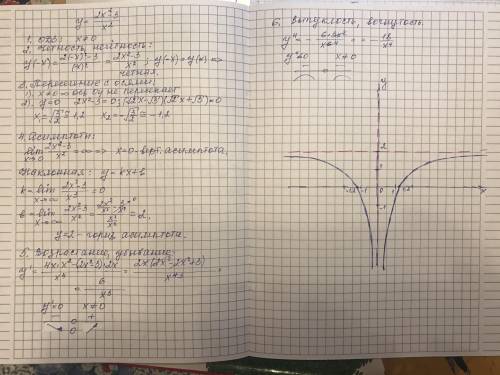 y = (2x²-3)/x²
1. ОДЗ: x ≠ 0
2. Чётность, нечётность:
y(-x) = (2(-x)²-3)/(-x)² = (2x²-3)/x² ; y(-x) = y(x) ⇒
чётная.
3. Пересечение с осями:
1). x ≠ 0 ⇒ ось Oy не пересекает
2). y = 0 2x²-3 = 0; (√2x-√3)(√2x+√3) = 0
x₁ = √3/√2 ≈ 1,2 x₂ = -√3/√2 ≈ -1,2
4. Асимптоты:
lim x→0 (2x²-3)/x² = ∞ ⇒ x=0 - верт. асимптота,
Наклонная: y = kx+b
k = lim x→∞ (2x²-3)/x³ = 0
b = lim x→∞ (2x²-3)/x² = (2x²/x² - 3/x²)/(x²/x²) = 2,
y = 2 - гориз. асимптота.
5. Возрастание, убывание:
y' = (4x·x²-(2x²-3)·2x)/x⁴ = 2x(2x²-2x²+3)/x⁴ =
= 6/x³
y' ≠ 0 x ≠ 0
- 0 +
0
6. Выпуклость, вогнутость.
y'' = - 6·3x²/x⁶ = - 18/x⁴
y'' ≠ 0 x ≠ 0
- -
y
2
1
-1,2 -1 0 1 1,2 x
-1